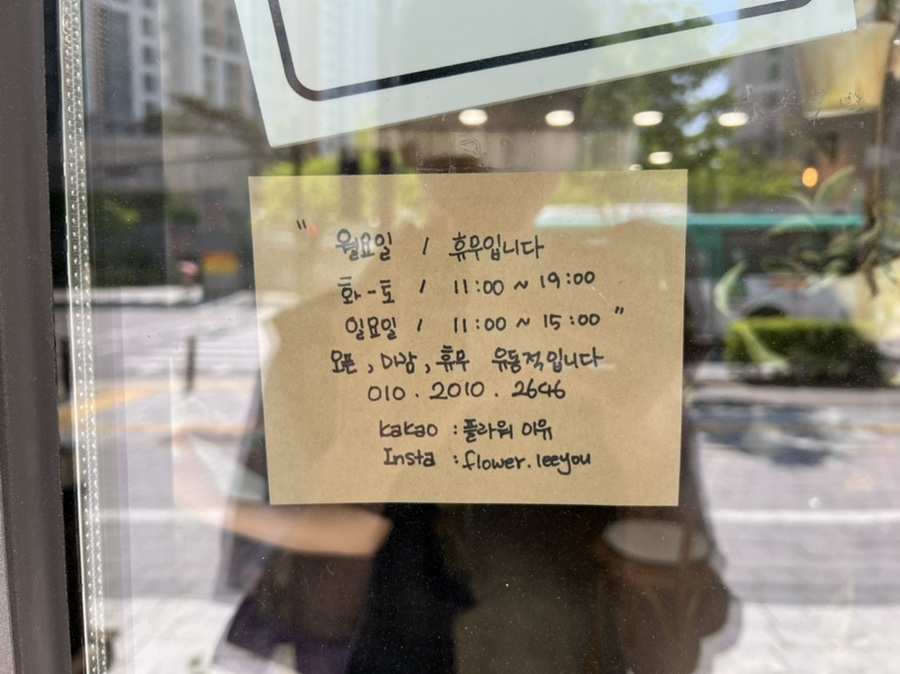 " 월요일 / 휴무입니다
화-토 / 11:00 ~ 19:00
일요일 / 11:00 ~ 15:00 "
오픈, 마감, 휴무 유동적입니다
010 . 2010 . 2646
kakao : 플라워 이유
Insta : flower.leeyou